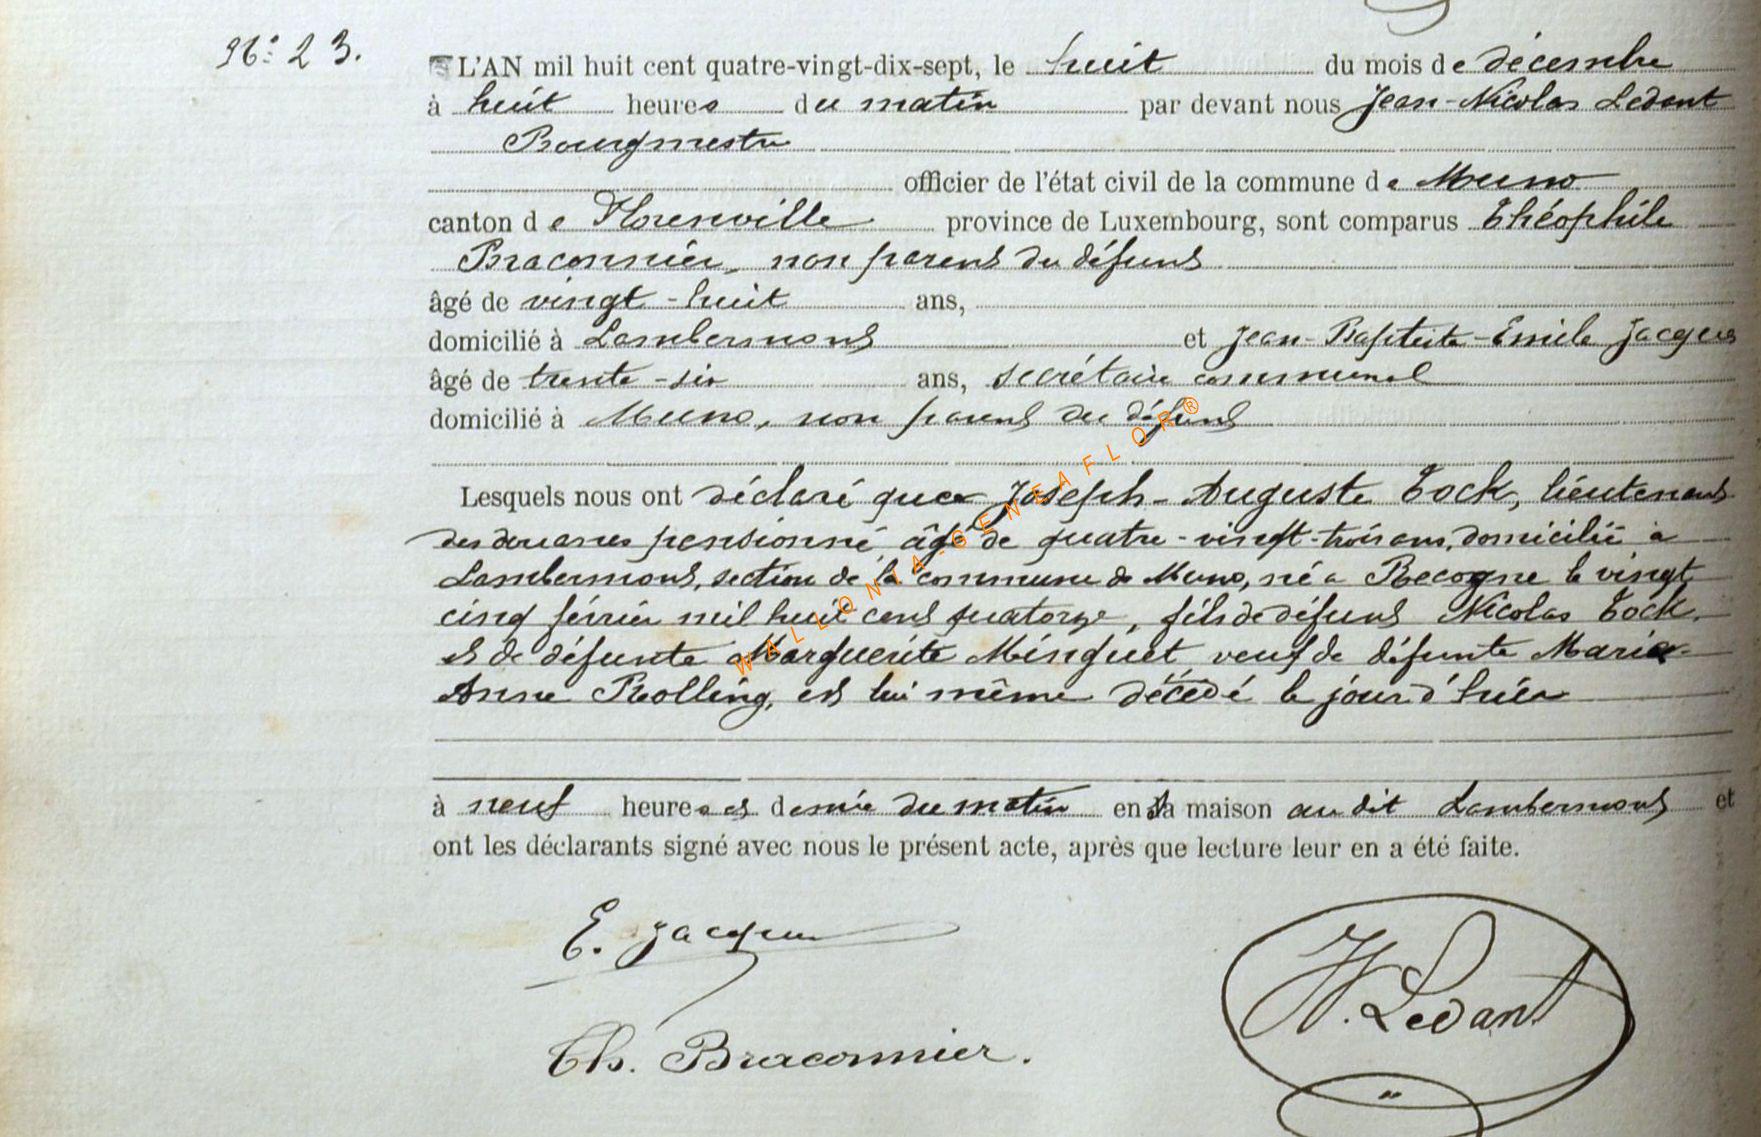 N° 23.
L'AN mil huit cent quatre-vingt-dix-sept, le huit du mois de décembre
à huit heures du matin par devant nous Jean-Nicolas Ledant
Bourgmestre
officier de l'état civil de la commune de Muno
canton de Florenville province de Luxembourg, sont comparus Théophile
Braconnier, non parent du défunt
âgé de vingt-huit ans,
domicilié à Lambermont et Jean-Baptiste-Emile Jacques
âgé de trente-six ans, secrétaire communal
domicilié à Muno, non parent du défunt
Lesquels nous ont déclaré que Joseph-Auguste Tock, lieutenant
des douanes pensionné, âgé de quatre-vingt-trois ans, domicilié à
Lambermont, section de la commune de Muno, né à Recogne le vingt
cinq février mil huit cent quatorze, fils de défunt Nicolas Tock
et de défunte Marguerite Minguet veuf de défunte Marie-
Anne Rolling, est lui même décédé le jour d'hier
à neuf heures et demie du matin en sa maison au dit Lambermont et
ont les déclarants signé avec nous le présent acte, après que lecture leur en a été faite.
E. Jacques
Th. Braconnier.
N. Ledant
WALLONIA-GENEAFLOR®